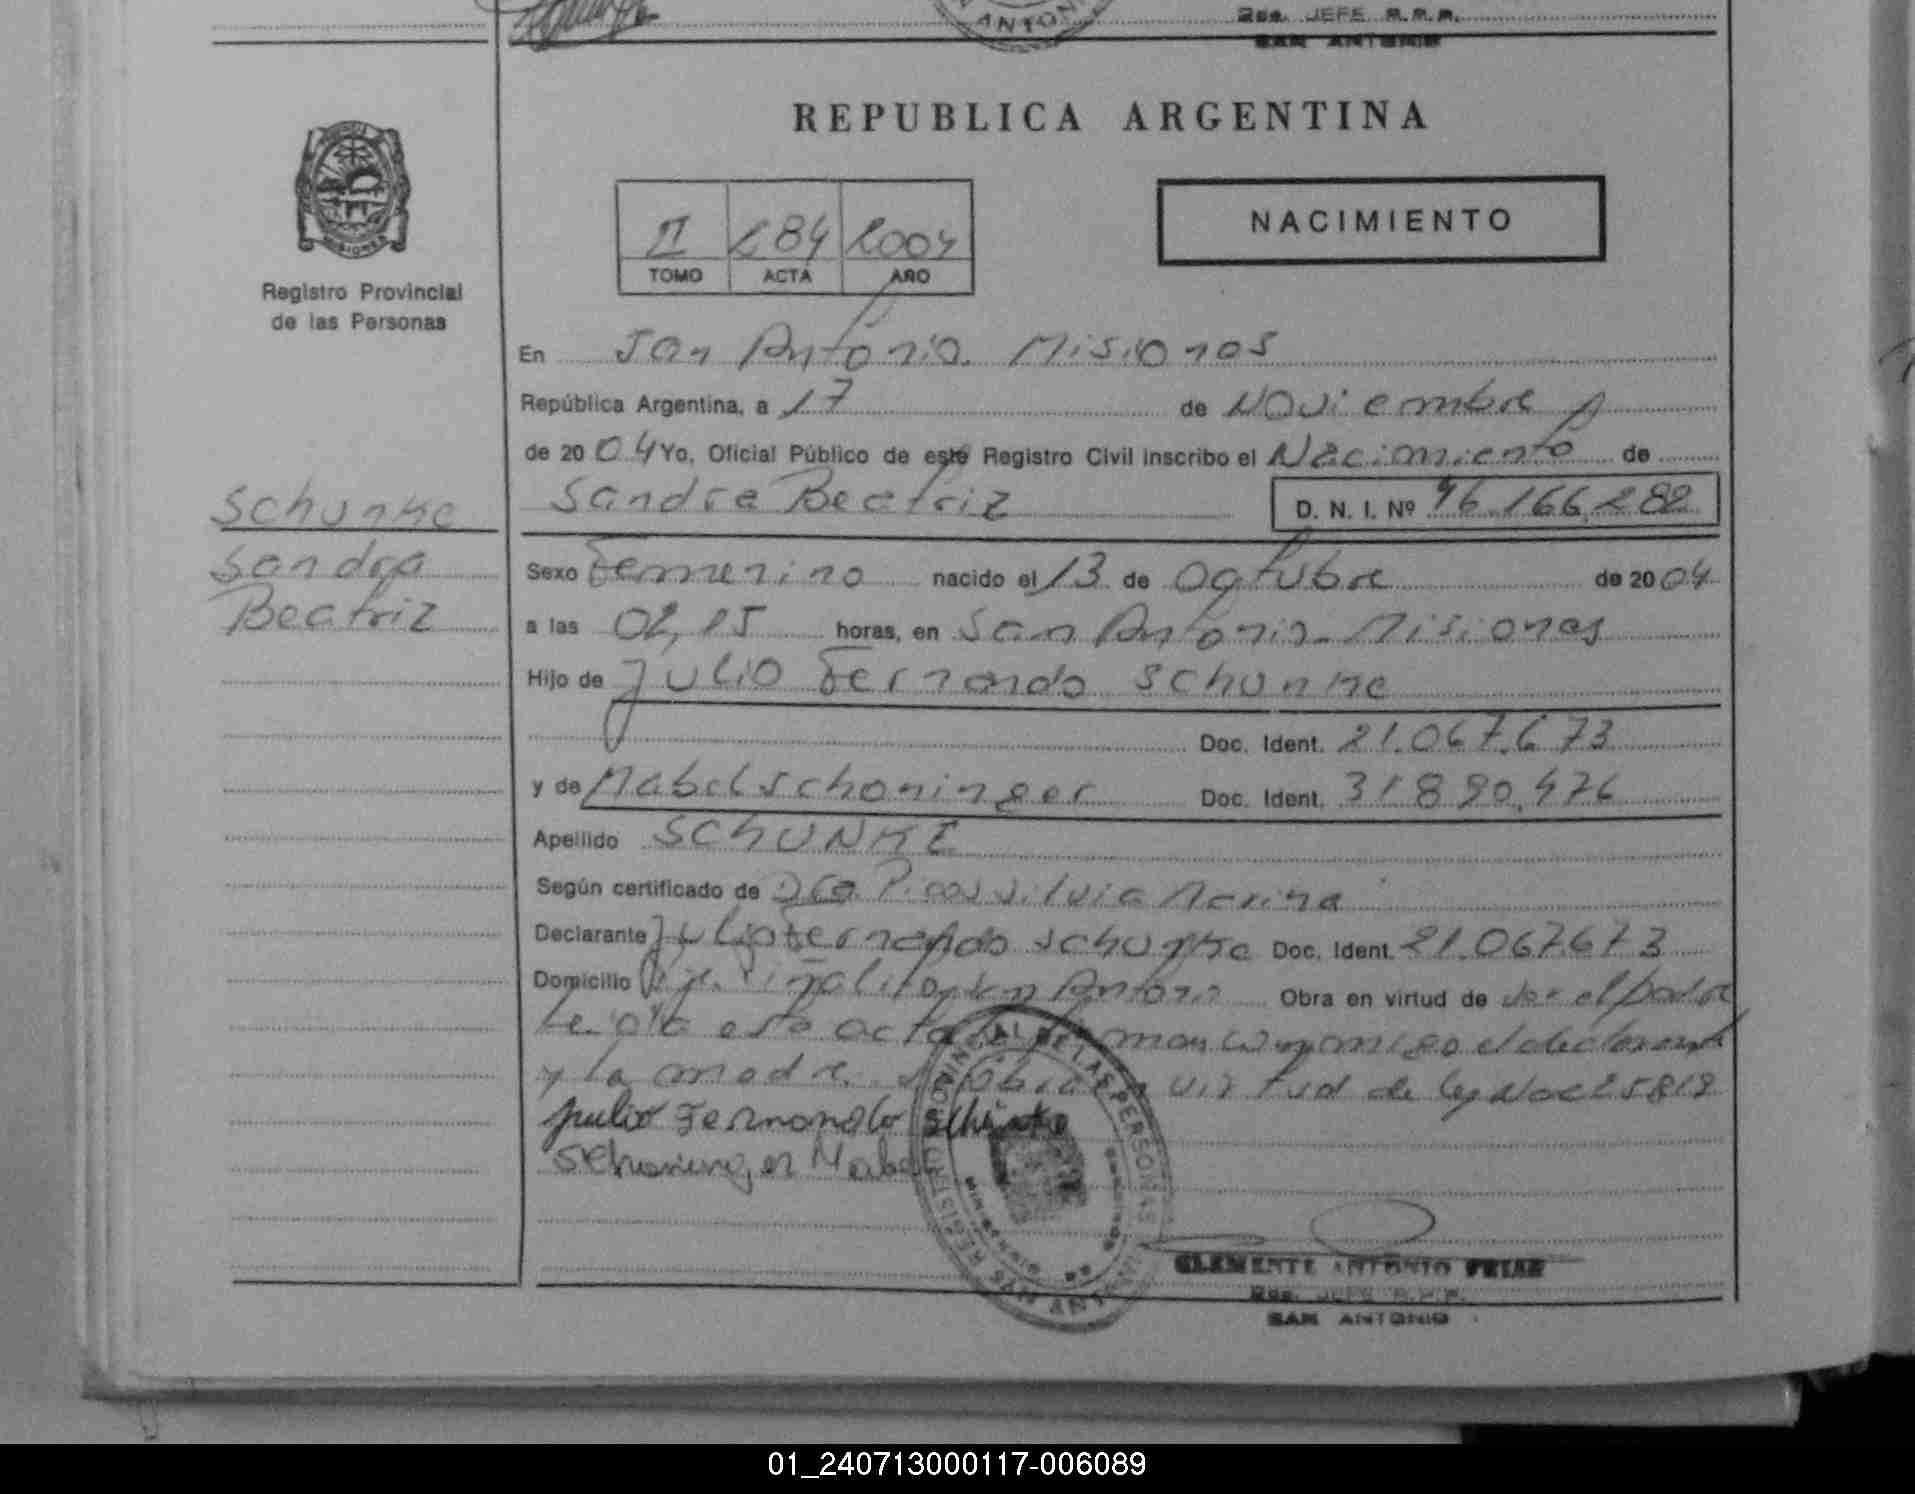 SAN ANTONIO
Dac. JEFE R.P.P.
SAN ANTONIO
REPUBLICA ARGENTINA
MISIONES
Registro Provincial
de las Personas
II 284 2004
TOMO ACTA AÑO
NACIMIENTO
En San Antonio Misiones
República Argentina, a 17 de Noviembre
de 2004 Yo, Oficial Público de este Registro Civil inscribo el Nacimiento de
Schunke
Sandra Beatriz D. N. I. Nº 46.166.282
Sandra
Beatriz
Sexo Femenino nacido el 13 de Octubre de 2004
a las 02,15 horas, en San Antonio Misiones
Hijo de Julio Fernando Schunke
Doc. Ident. 21.067.673
y de Mabel Schoninger Doc. Ident. 31.890.476
Apellido SCHUNKE
Según certificado de Dra. Silvia Marina
Declarante Julio Fernando Schunke Doc. Ident. 21.067.673
Domicilio San Antonio Obra en virtud de ser el padre
Leída esta acta firman conmigo el declarante
y la madre virtud de ley 25819
Julio Fernando Schunke
Schoninger Mabel
REGISTRO PROVINCIAL DE LAS PERSONAS
CLEMENTE ANTONIO
JEFE R.P.P.
SAN ANTONIO
01_240713000117-006089